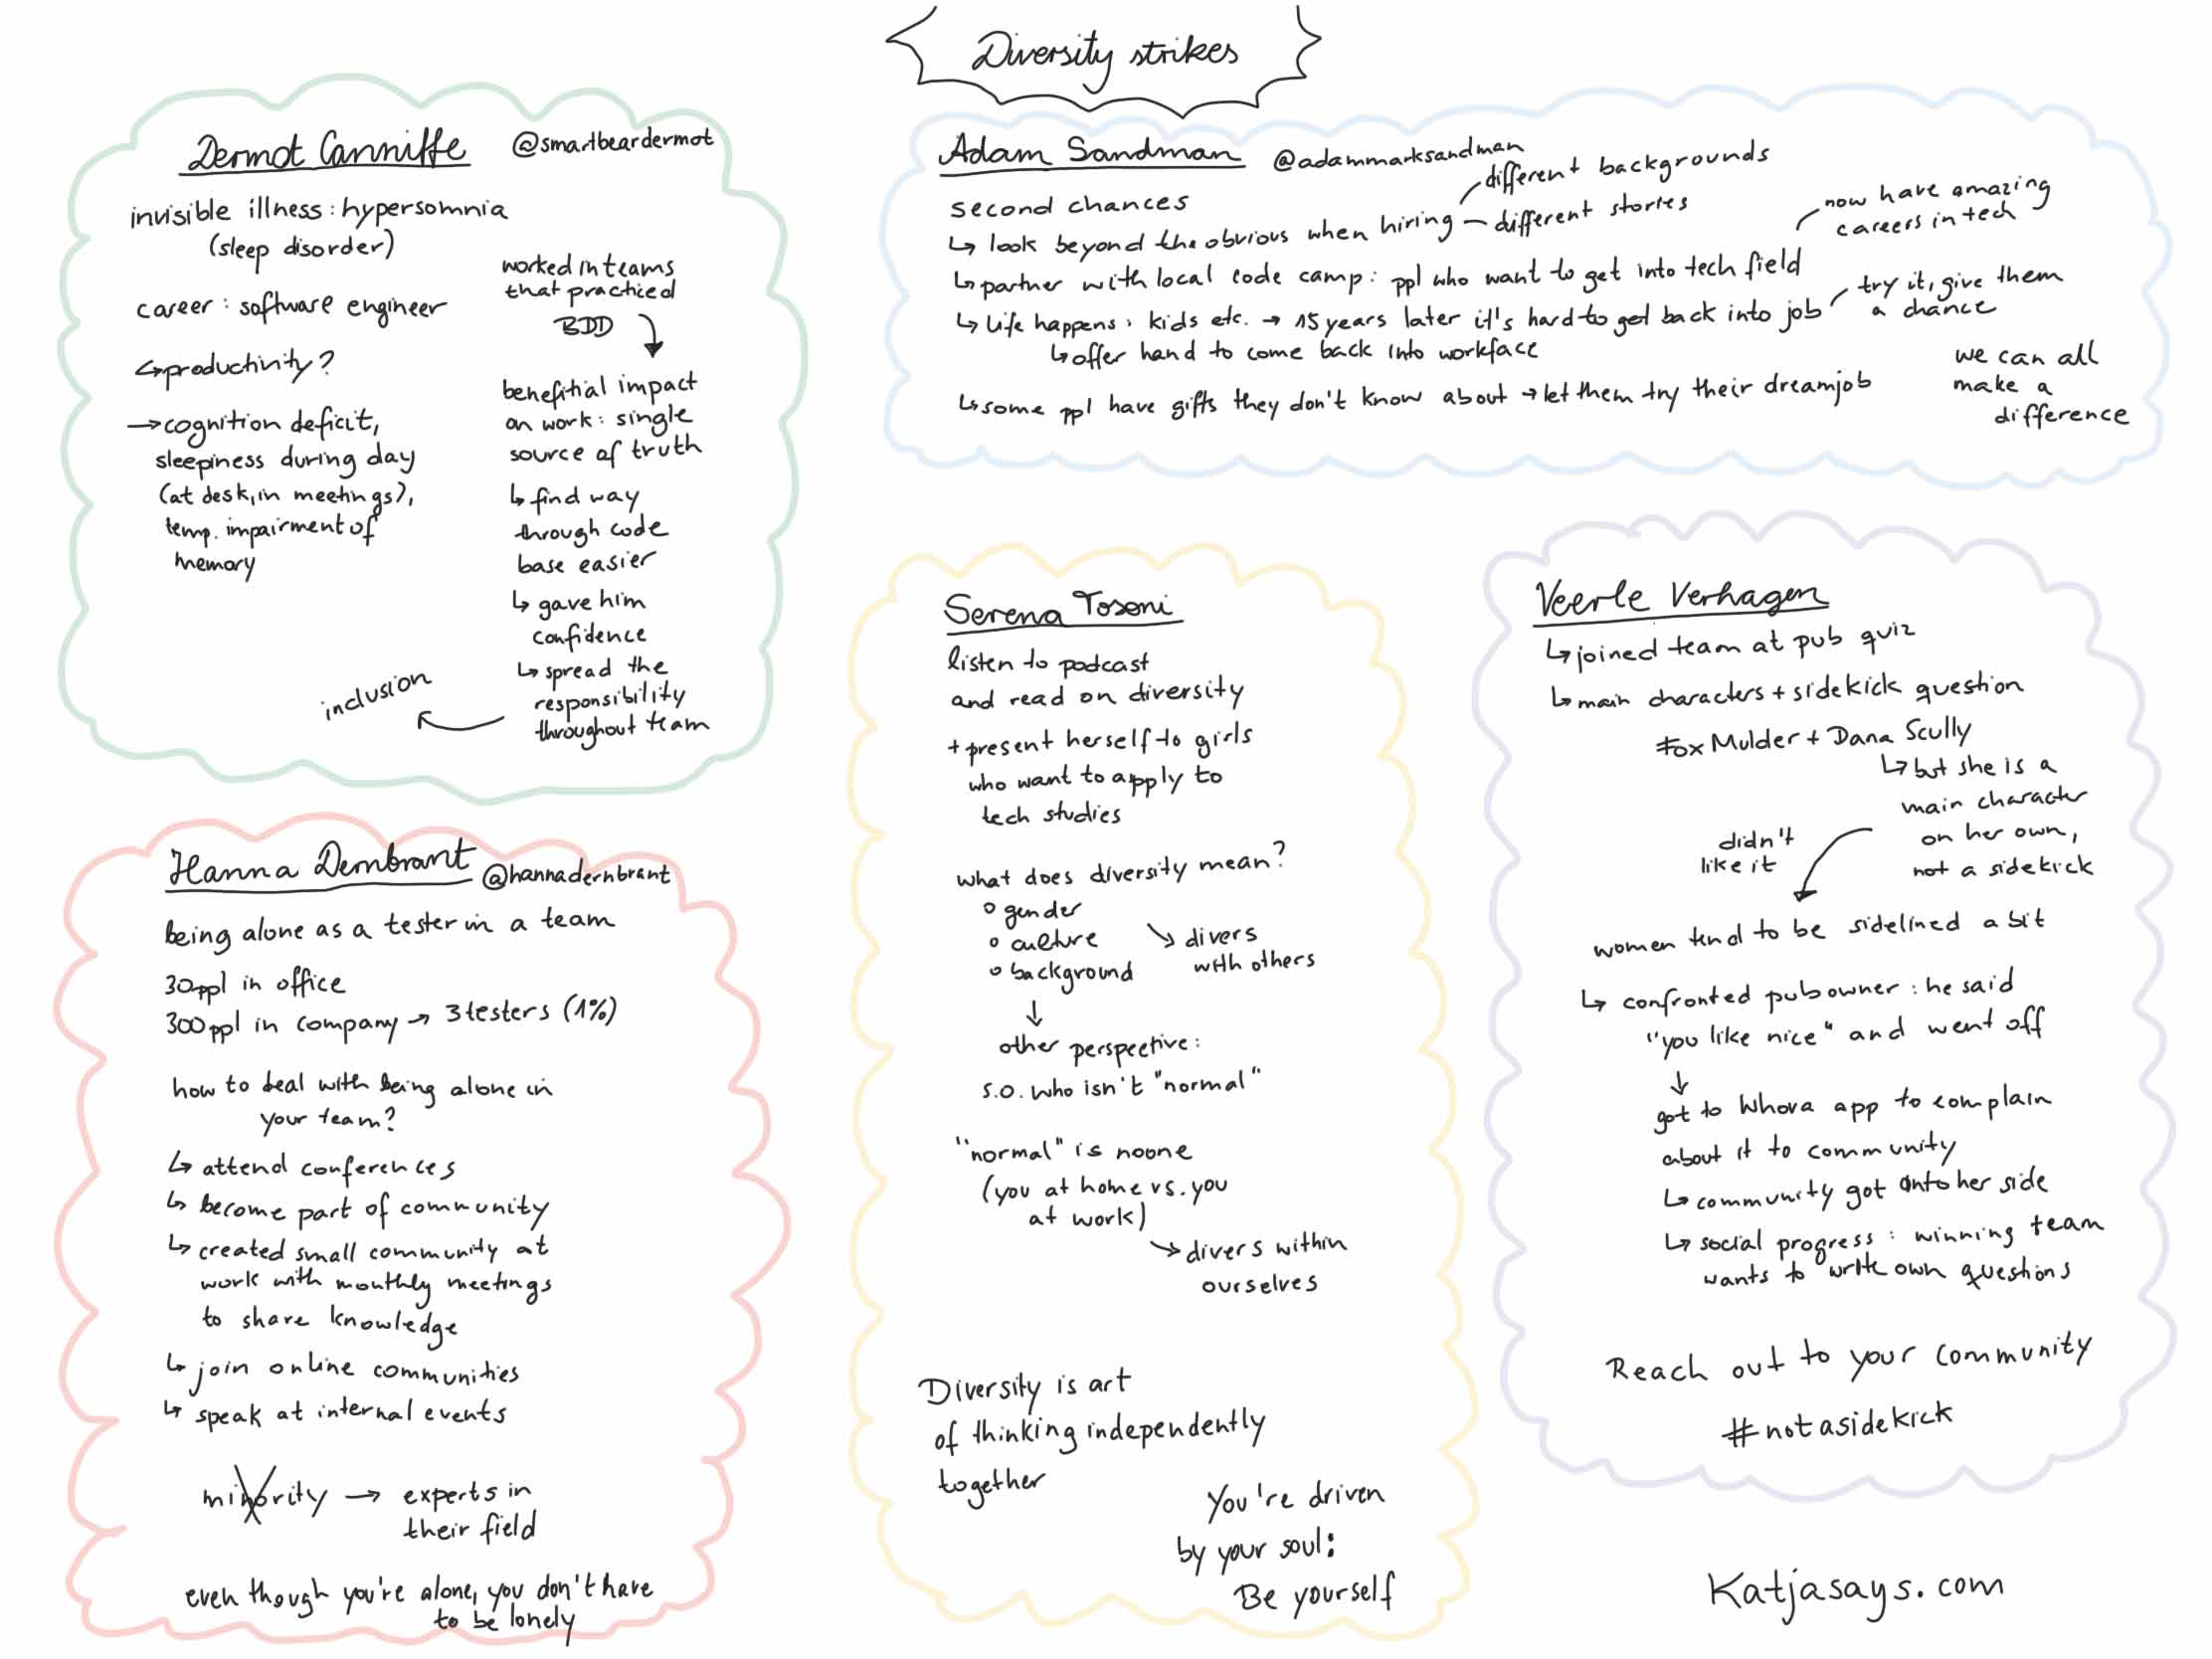 Diversity strikes
Dermot Canniffe @smartbeardermot
invisible illness: hypersomnia
(sleep disorder)
career: software engineer
↳ productivity?
→ cognition deficit,
sleepiness during day
(at desk, in meetings),
temp. impairment of
memory
worked in teams
that practiced
BDD
benefitial impact
on work: single
source of truth
↳ find way
through code
base easier
↳ gave him
confidence
↳ spread the
responsibility
throughout team
inclusion
Adam Sandman @adammarksandman
second chances
↳ look beyond the obvious when hiring
different backgrounds
– different stories
↳ partner with local code camp: ppl who want to get into tech field
now have amazing
careers in tech
↳ life happens: kids etc. → 15 years later it's hard to get back into job
try it, give them
a chance
↳ offer hand to come back into workface
↳ some ppl have gifts they don't know about → let them try their dreamjob
we can all
make a
difference
Hanna Dernbrant @hannadernbrant
being alone as a tester in a team
30ppl in office
300ppl in company → 3 testers (1%)
how to deal with being alone in
your team?
↳ attend conferences
↳ become part of community
↳ created small community at
work with monthly meetings
to share knowledge
↳ join online communities
↳ speak at internal events
minority → experts in
their field
even though you're alone, you don't have
to be lonely
Serena Tosoni
listen to podcast
and read on diversity
+ present herself to girls
who want to apply to
tech studies
what does diversity mean?
o gender
o culture
o background
↘ divers
with others
↓
other perspective:
s.o. who isn't "normal"
"normal" is noone
(you at home vs. you
at work)
↘ divers within
ourselves
Diversity is art
of thinking independently
together
You're driven
by your soul:
Be yourself
Veerle Verhagen
↳ joined team at pub quiz
↳ main characters + sidekick question
Fox Mulder + Dana Scully
↳ but she is a
main character
on her own,
not a sidekick
didn't
like it
women tend to be sidelined a bit
↳ confronted pub owner: he said
"you like nice" and went off
↓
got to Whova app to complain
about it to community
↳ community got onto her side
↳ social progress: winning team
wants to write own questions
Reach out to your community
#notasidekick
Katjasays.com